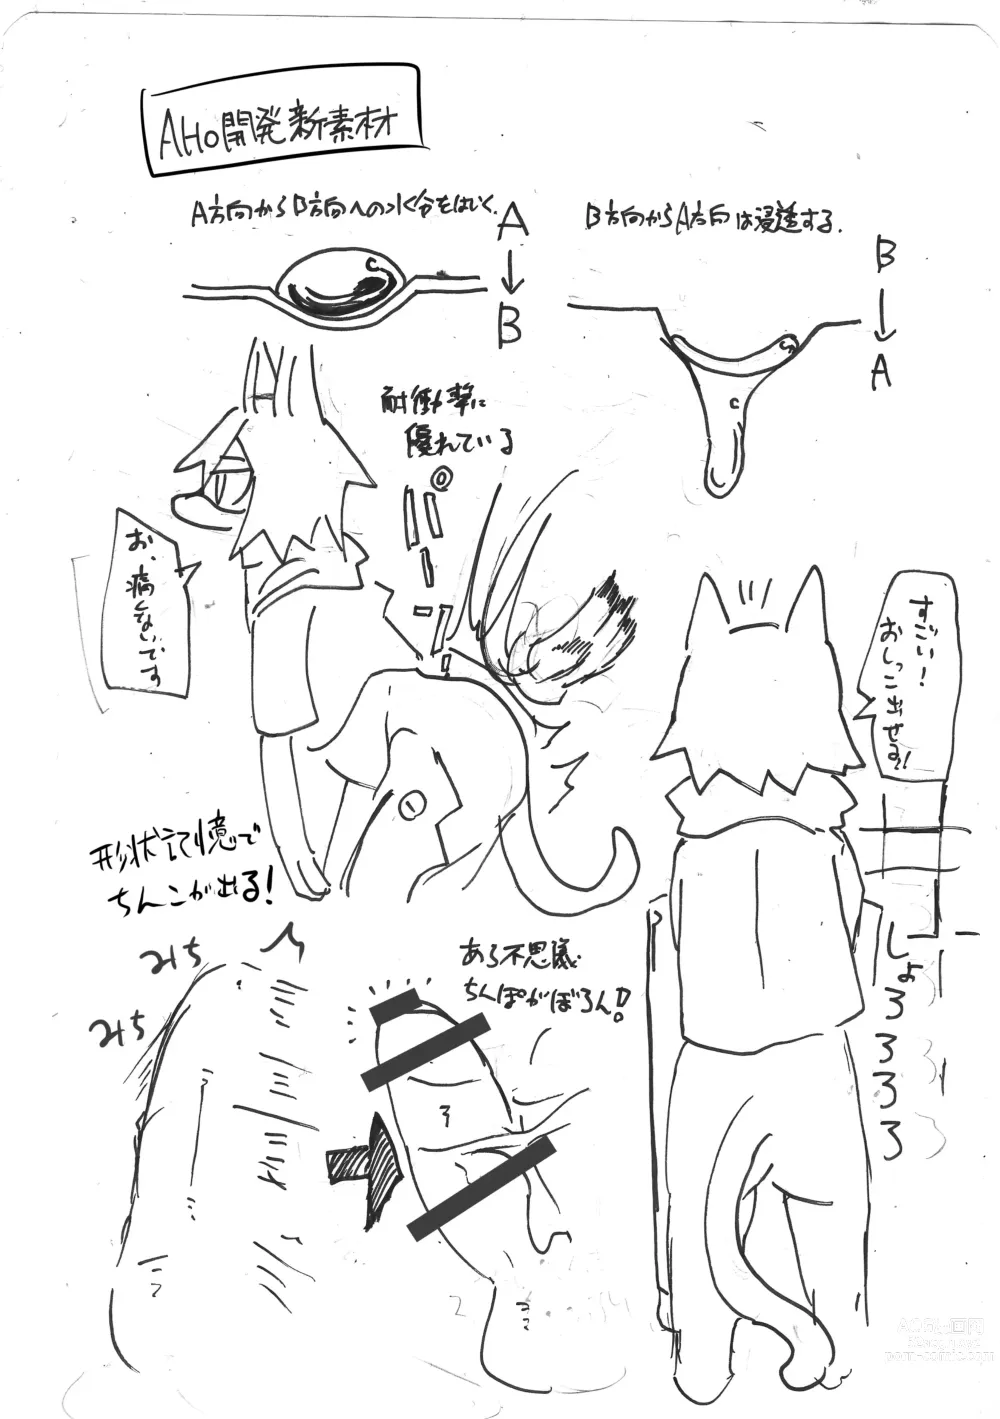 AHO開発新素材
A方向からB方向への水分をはじく.
A
B
B方向からA方向は浸透する.
B
A
耐衝撃に
優れている
お、
痛くないです
すごい!
おしっこ出せる!
形状記憶で
ちんこが出る!
みち
みち
ある不思議
ちんぽがぼろん!
しょ
ろ
ろ
ろ
ろ